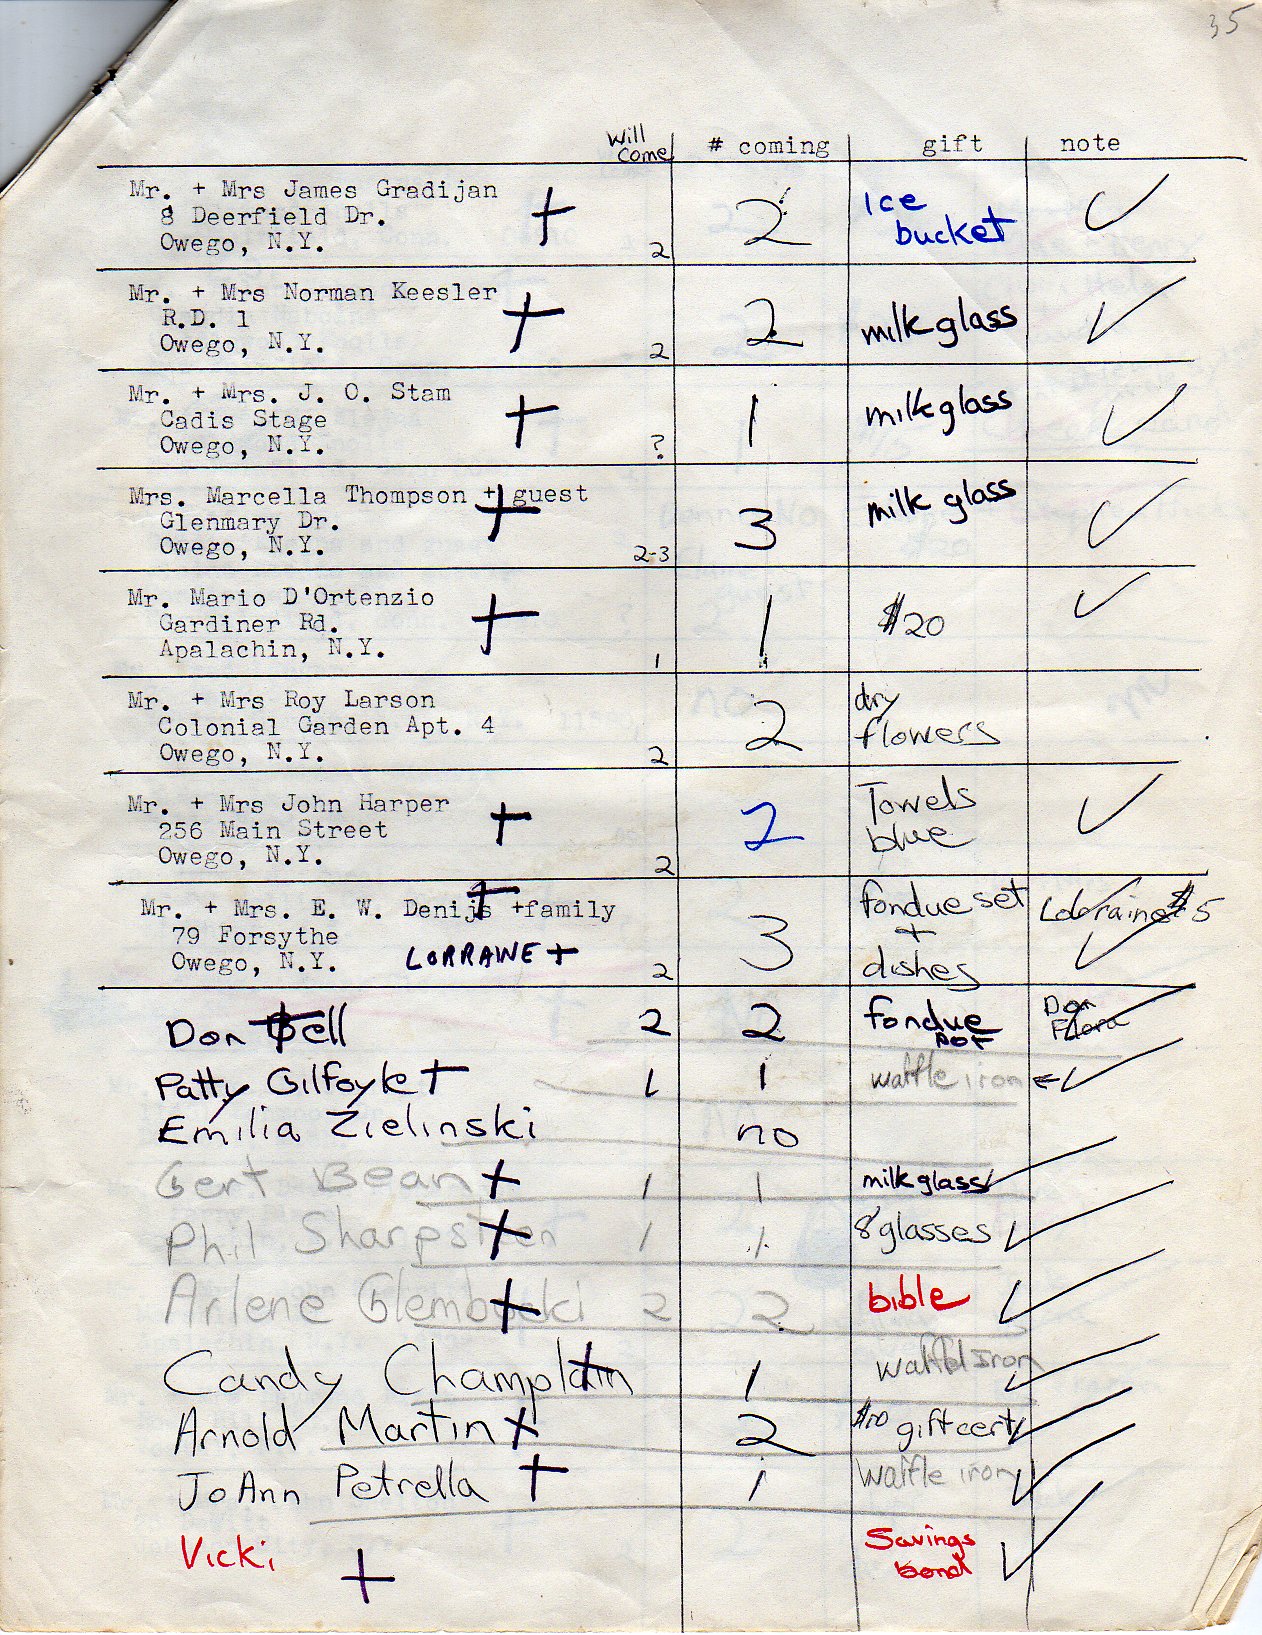 35
Will come # coming gift note
Mr. + Mrs James Gradijan
8 Deerfield Dr.
Owego, N.Y.
2 2 Ice bucket ✓
Mr. + Mrs Norman Keesler
R.D. 1
Owego, N.Y.
2 2 milk glass ✓
Mr. + Mrs. J. O. Stam
Cadis Stage
Owego, N.Y.
? 1 milk glass ✓
Mrs. Marcella Thompson + guest
Glenmary Dr.
Owego, N.Y.
2-3 3 milk glass ✓
Mr. Mario D'Ortenzio
Gardiner Rd.
Apalachin, N.Y.
1 1 $20 ✓
Mr. + Mrs Roy Larson
Colonial Garden Apt. 4
Owego, N.Y.
2 2 dry flowers
Mr. + Mrs John Harper
256 Main Street
Owego, N.Y.
2 2 Towels blue ✓
Mr. + Mrs. E. W. Denijs +family
79 Forsythe
Owego, N.Y. LORRAINE +
2 3 fondue set + dishes Lorraine $5 ✓
Don Bell 2 2 fondue pot Don Flora ✓
Patty Gilfoyle + 1 1 waffle iron ← ✓
Emilia Zielinski no
Gert Bean + 1 1 milk glass ✓
Phil Sharpsteen + 1 1 8 glasses ✓
Arlene Glembocki + 2 2 bible ✓
Candy Champlain + 1 waffel Iron ✓
Arnold Martin + 2 $10 gift cert ✓
JoAnn Petrella + 1 waffle iron ✓
Vicki + Savings bond ✓